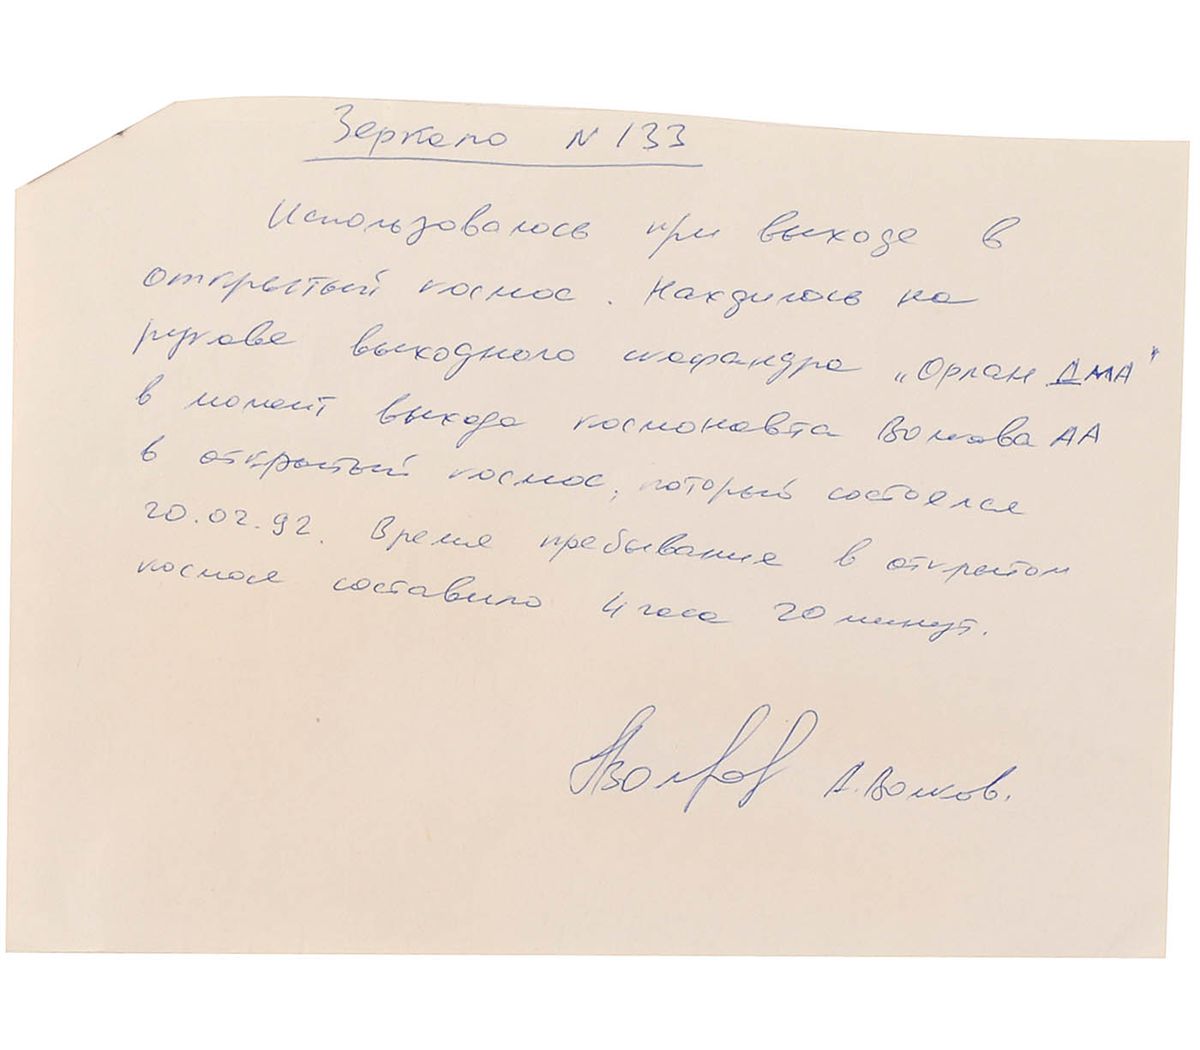 Зеркало N 133
Использовалось при выходе в
открытый космос. Находилось на
рукаве выходного скафандра „Орлан ДМА"
в момент выхода космонавта Волкова АА
в открытый космос, который состоялся
20.02.92. Время пребывания в открытом
космосе составило 4 часа 20 минут.
АВолков А. Волков.